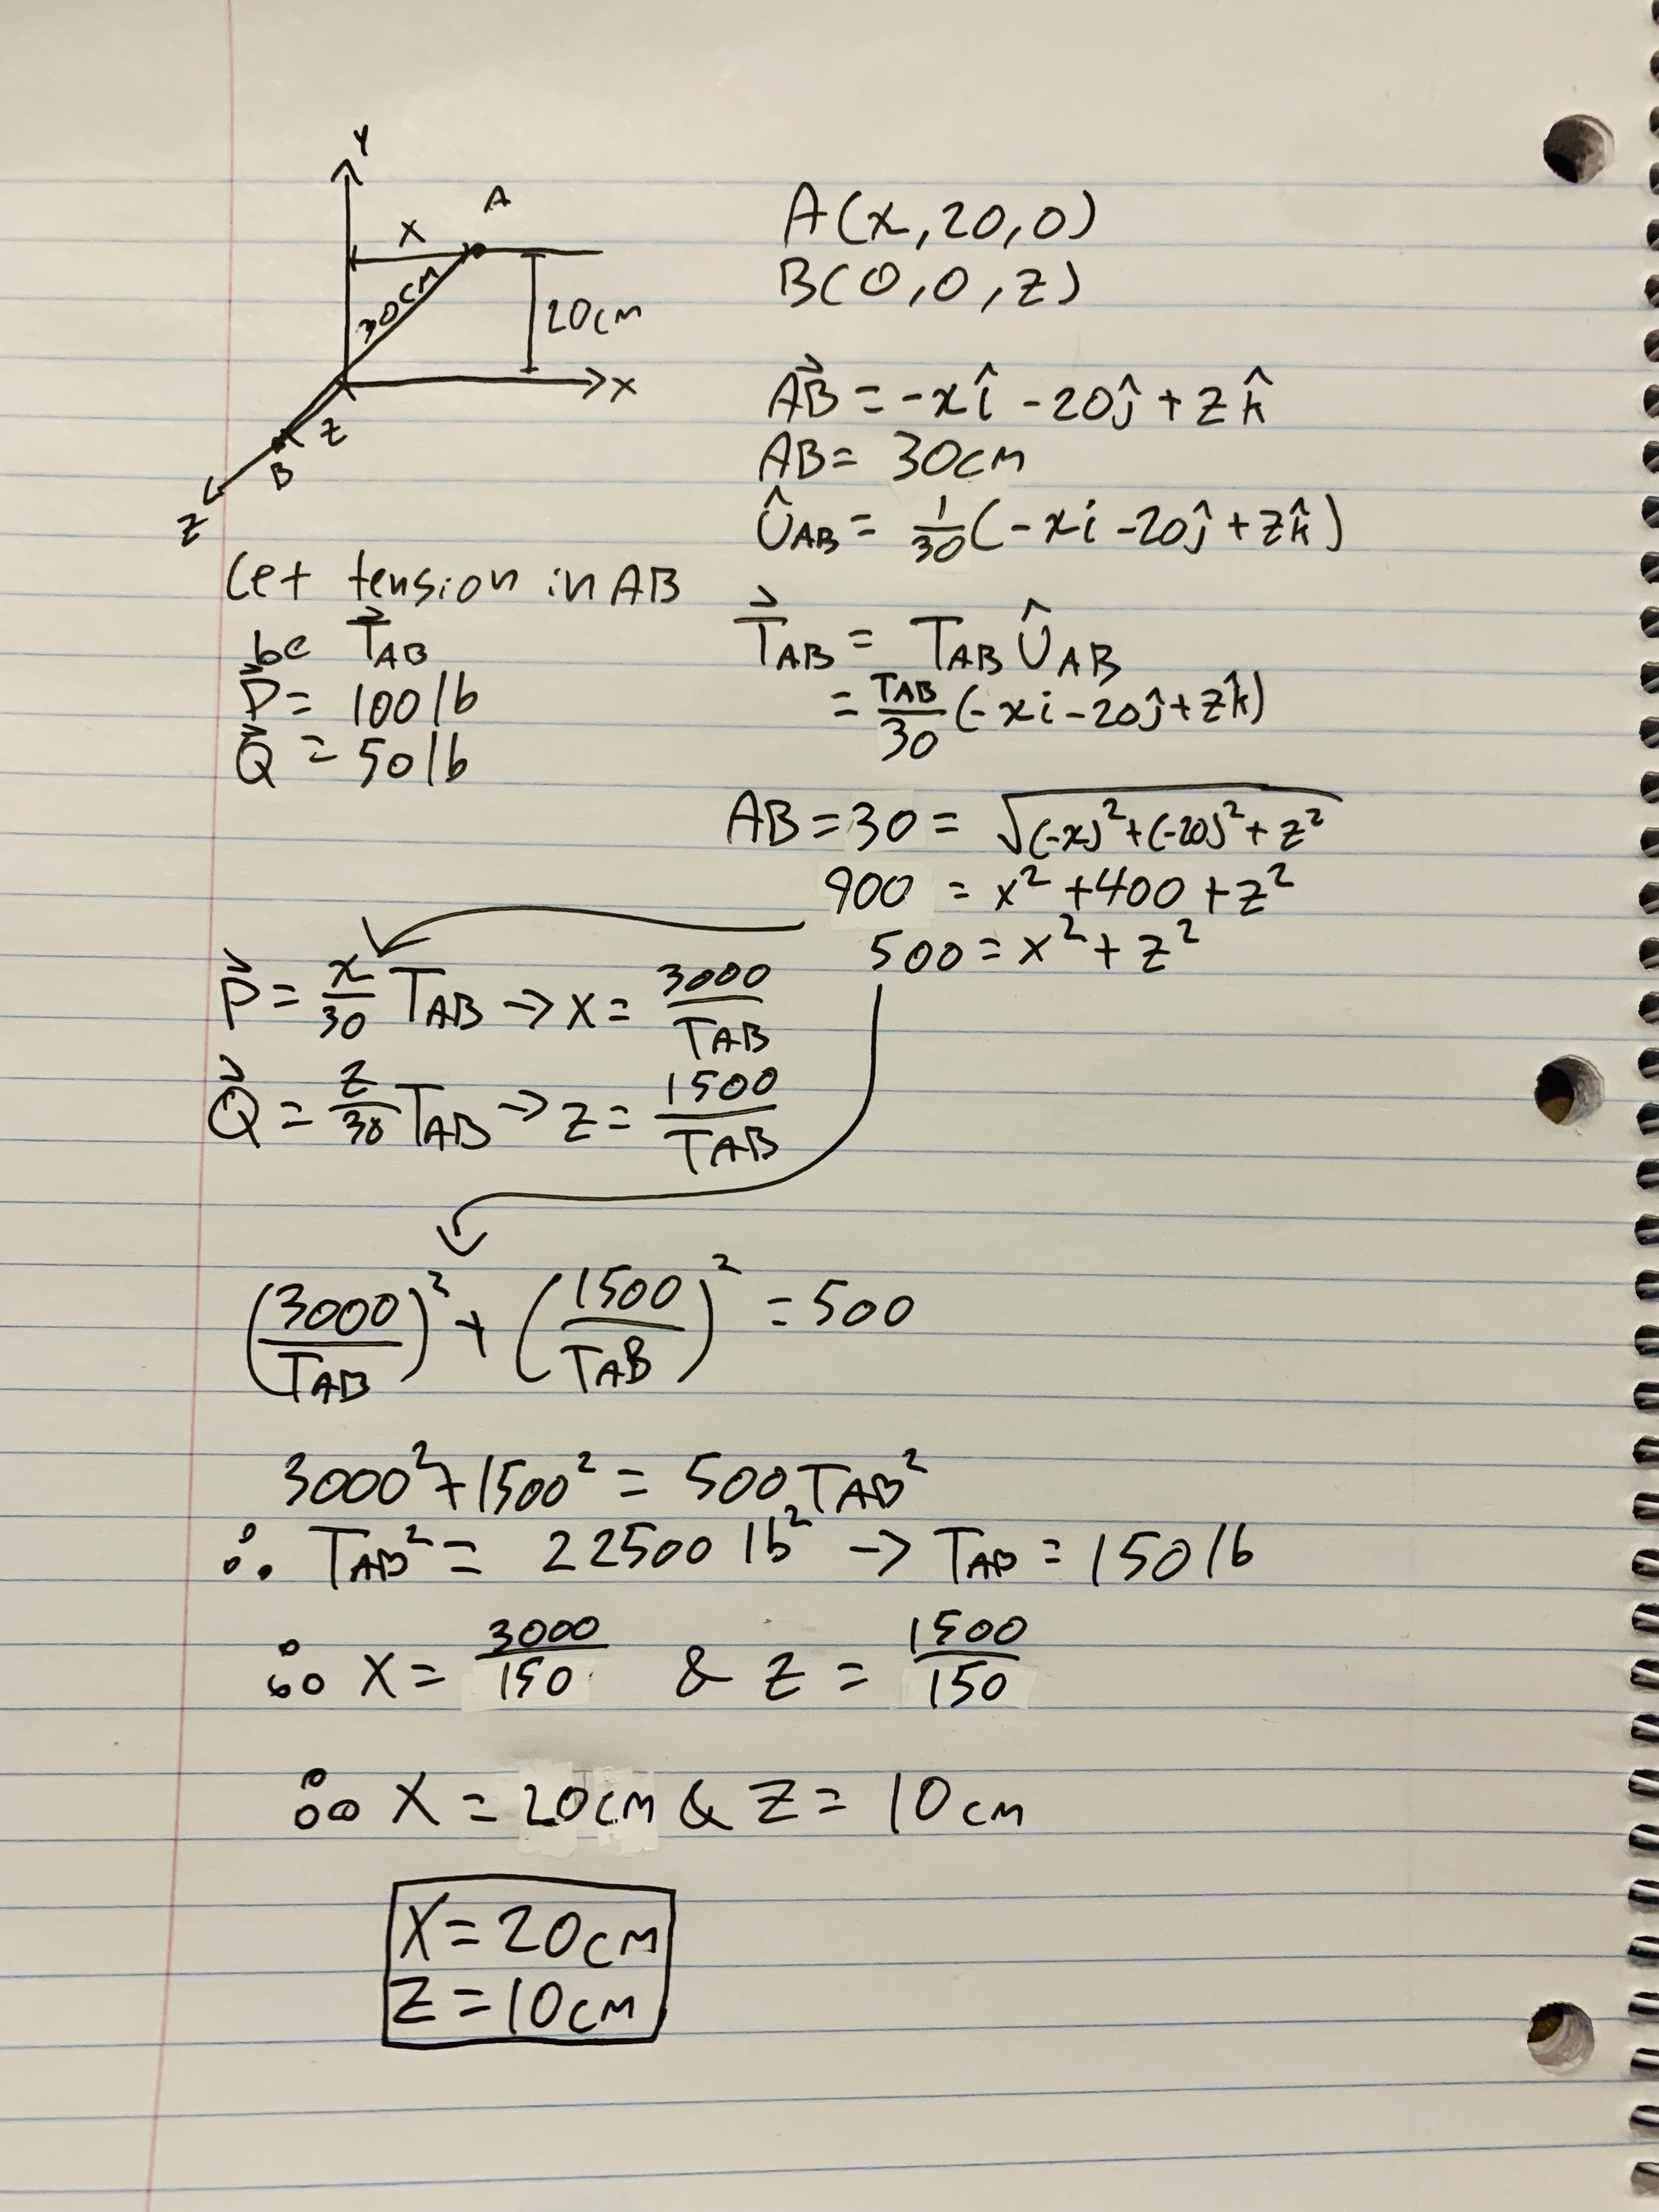 Y
A
X
30cm
20cm
X
Z
B
Z
A(x,20,0)
B(0,0,z)
A⃗B = -xî - 20ĵ + zk̂
AB = 30cm
Û_AB = 1/30(-xi - 20ĵ + zk̂)
Let tension in AB
be T⃗_AB
P⃗ = 100 lb
Q⃗ = 50 lb
T⃗_AB = T_AB Û_AB
= T_AB/30 (-xi - 20ĵ + zk̂)
AB = 30 = √((-x)² + (-20)² + z²)
900 = x² + 400 + z²
500 = x² + z²
P⃗ = x/30 T_AB → x = 3000/T_AB
Q⃗ = z/30 T_AB → z = 1500/T_AB
(3000/T_AB)² + (1500/T_AB)² = 500
3000² + 1500² = 500 T_AB²
∴ T_AB² = 22500 lb² → T_AB = 150 lb
∴ X = 3000/150 & Z = 1500/150
∴ X = 20cm & Z = 10cm
X = 20cm
Z = 10cm